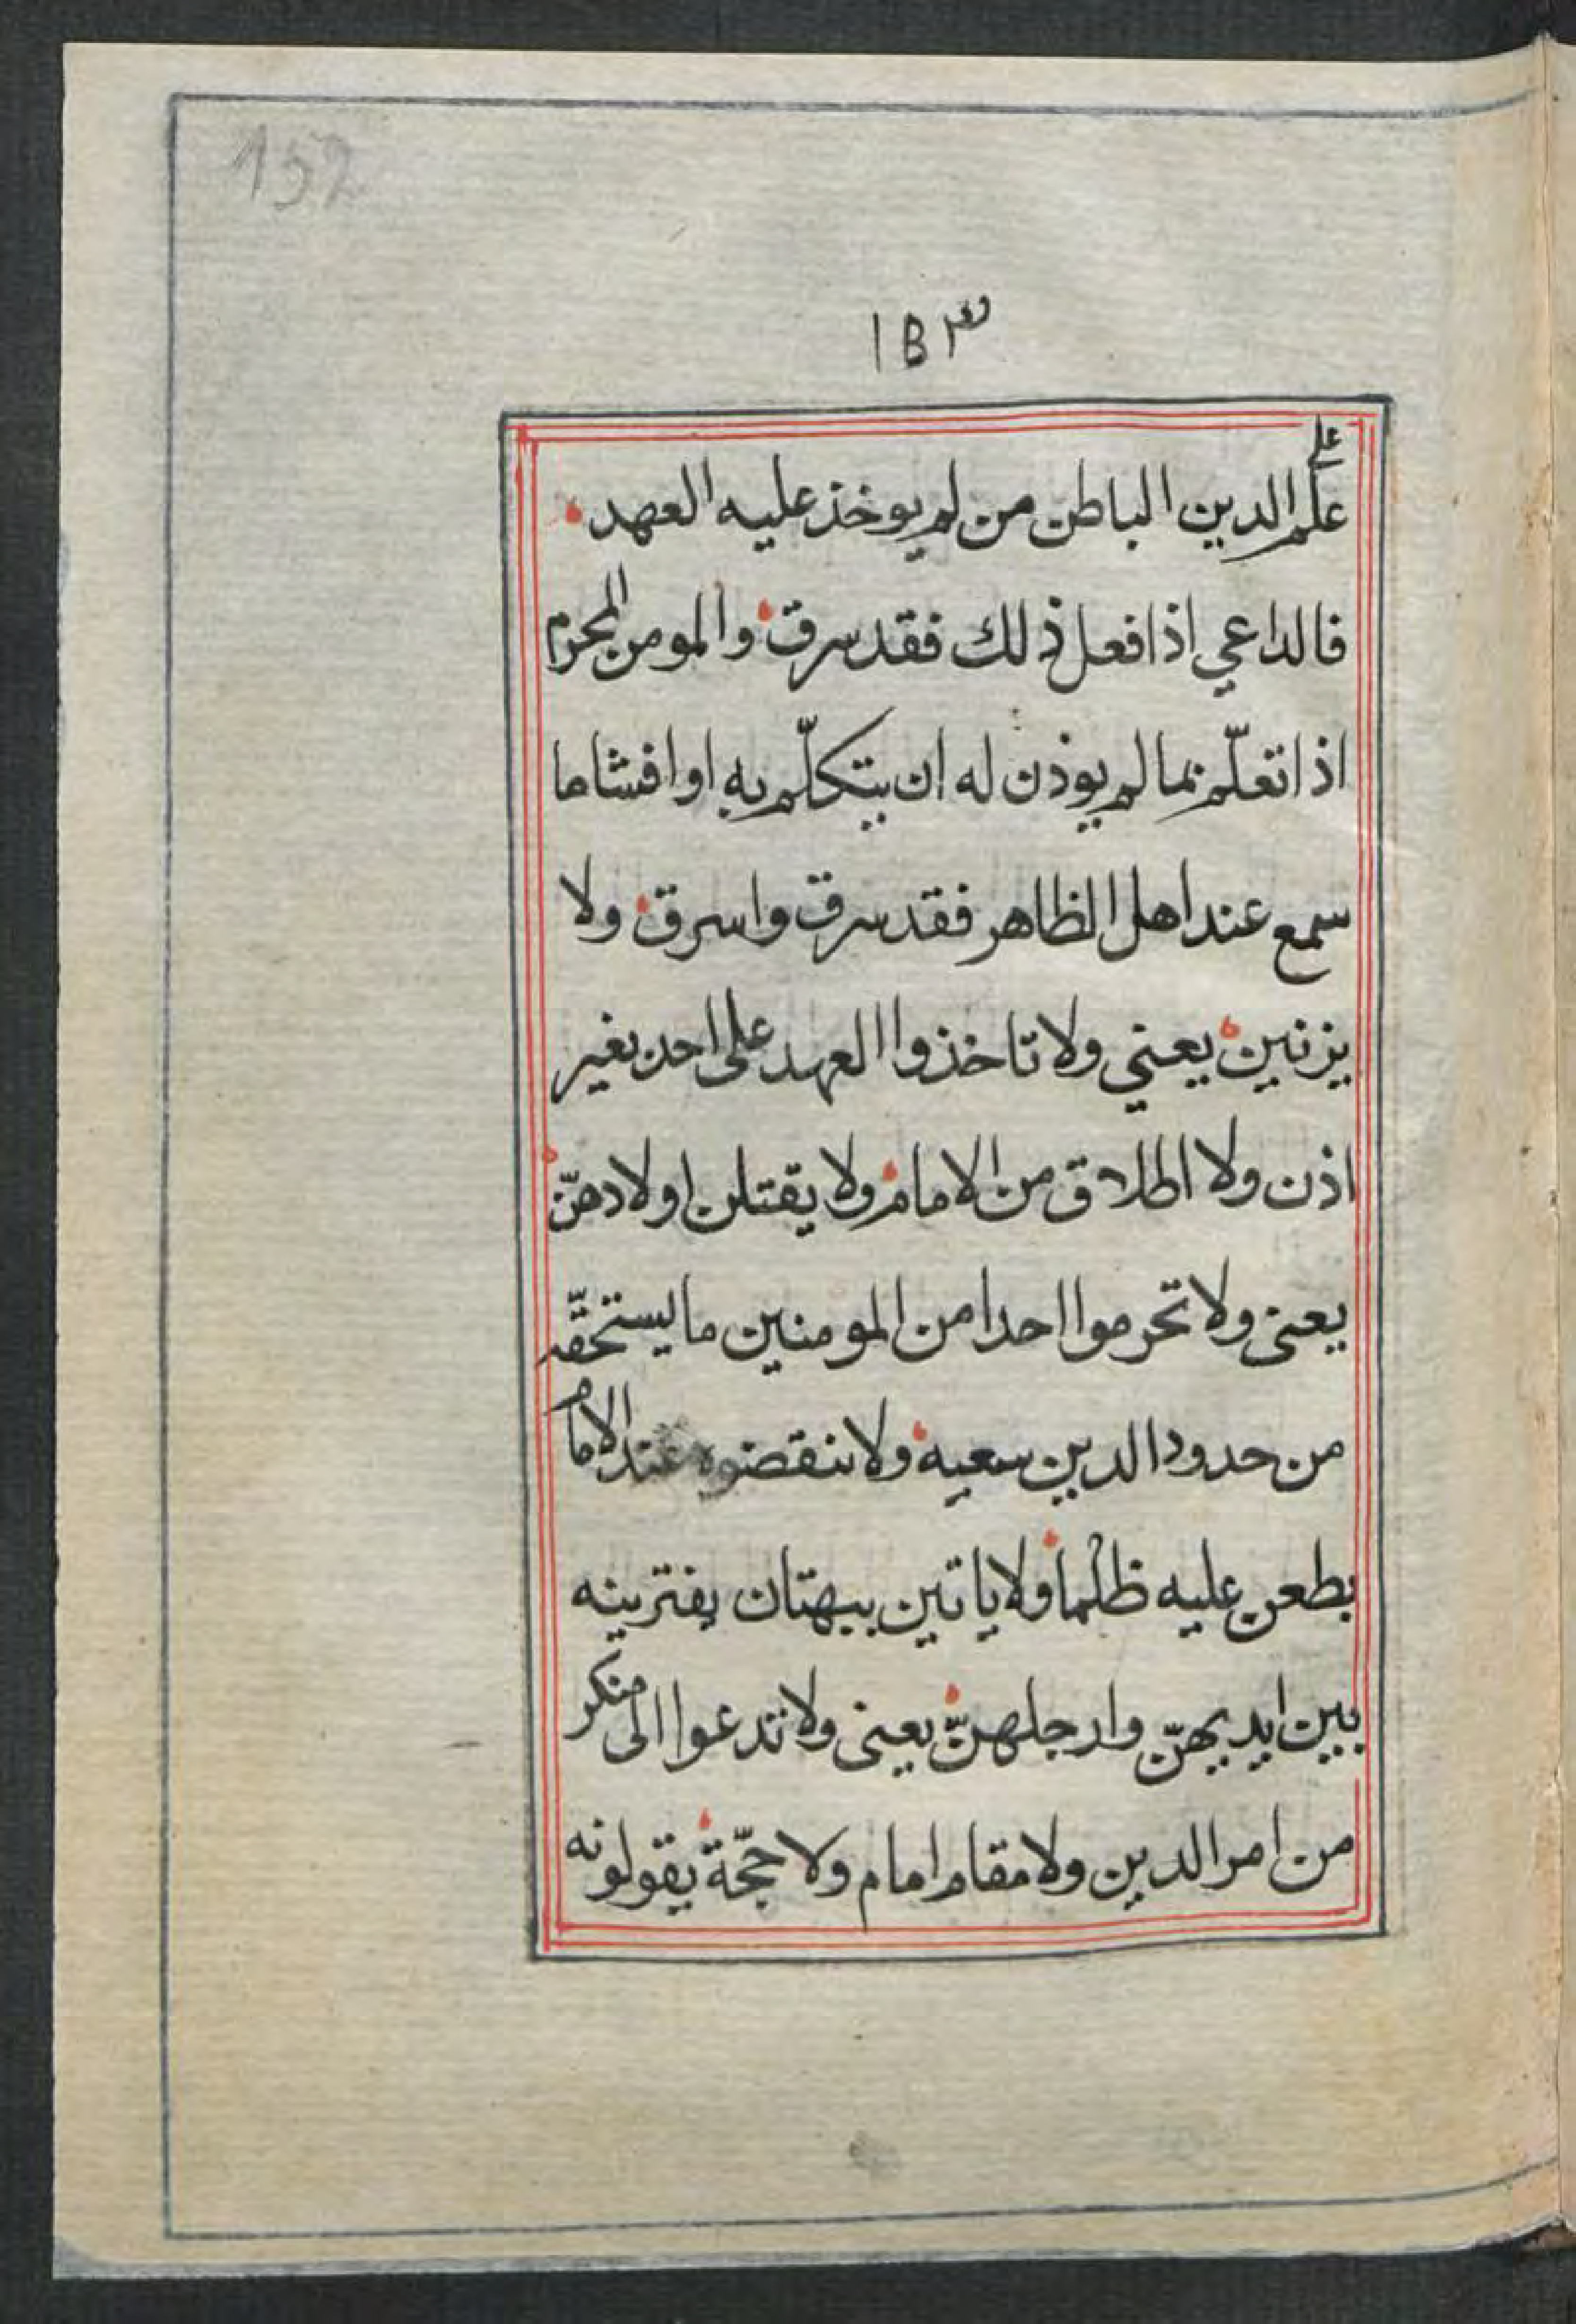 152
١٥٣
على
علم الدين الباطن من لم يوخذ عليه العهد
فالداعي اذا فعل ذلك فقد سرق والمومن المحرم
اذا تعلّم بما لم يوذن له ان يتكلّم به او افشا ما
سمع عند اهل الظاهر فقد سرق واسرق ولا
يزنين يعني ولا تاخذوا العهد على احد بغير
اذن ولا اطلاق من الامام ولا يقتلن اولادهنّ
يعنى ولا تحرموا احدا من المومنين ما يستحقّه
من حدود الدين سعيه ولا تنقضوه عند الامام
بطعن عليه ظلما ولا ياتين ببهتان يفترينه
بين ايديهنّ وارجلهنّ يعنى ولا تدعوا الى منكر
من امر الدين ولا مقام امام ولا حجّة يقولونه